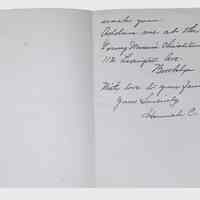 Address me at the
Young Women's Christian
112 Lexington Ave.
Brooklyn
With love to your fam
Yours Sincerely
Hannah C.